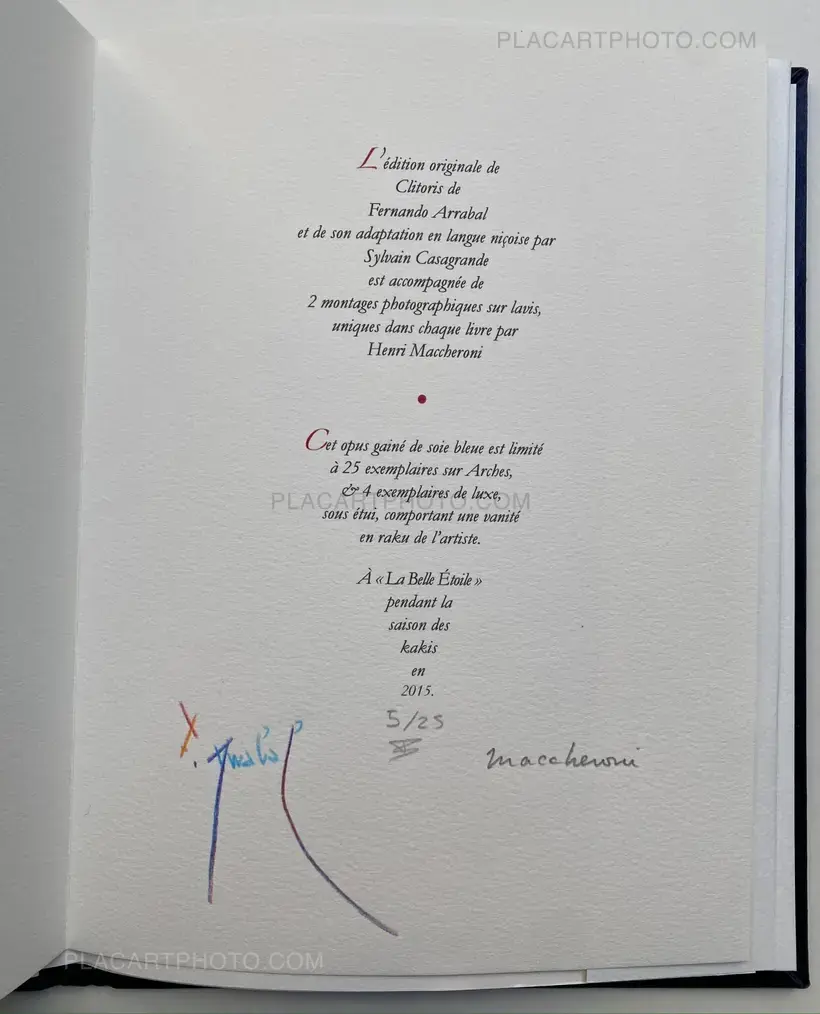 PLACARTPHOTO.COM
L'édition originale de
Clitoris de
Fernando Arrabal
et de son adaptation en langue niçoise par
Sylvain Casagrande
est accompagnée de
2 montages photographiques sur lavis,
uniques dans chaque livre par
Henri Maccheroni
Cet opus gainé de soie bleue est limité
à 25 exemplaires sur Arches,
& 4 exemplaires de luxe,
PLACARTPHOTO.COM
sous étui, comportant une vanité
en raku de l'artiste.
À « La Belle Étoile »
pendant la
saison des
kakis
en
2015.
5/25
Arrabal
Maccheroni
PLACARTPHOTO.COM